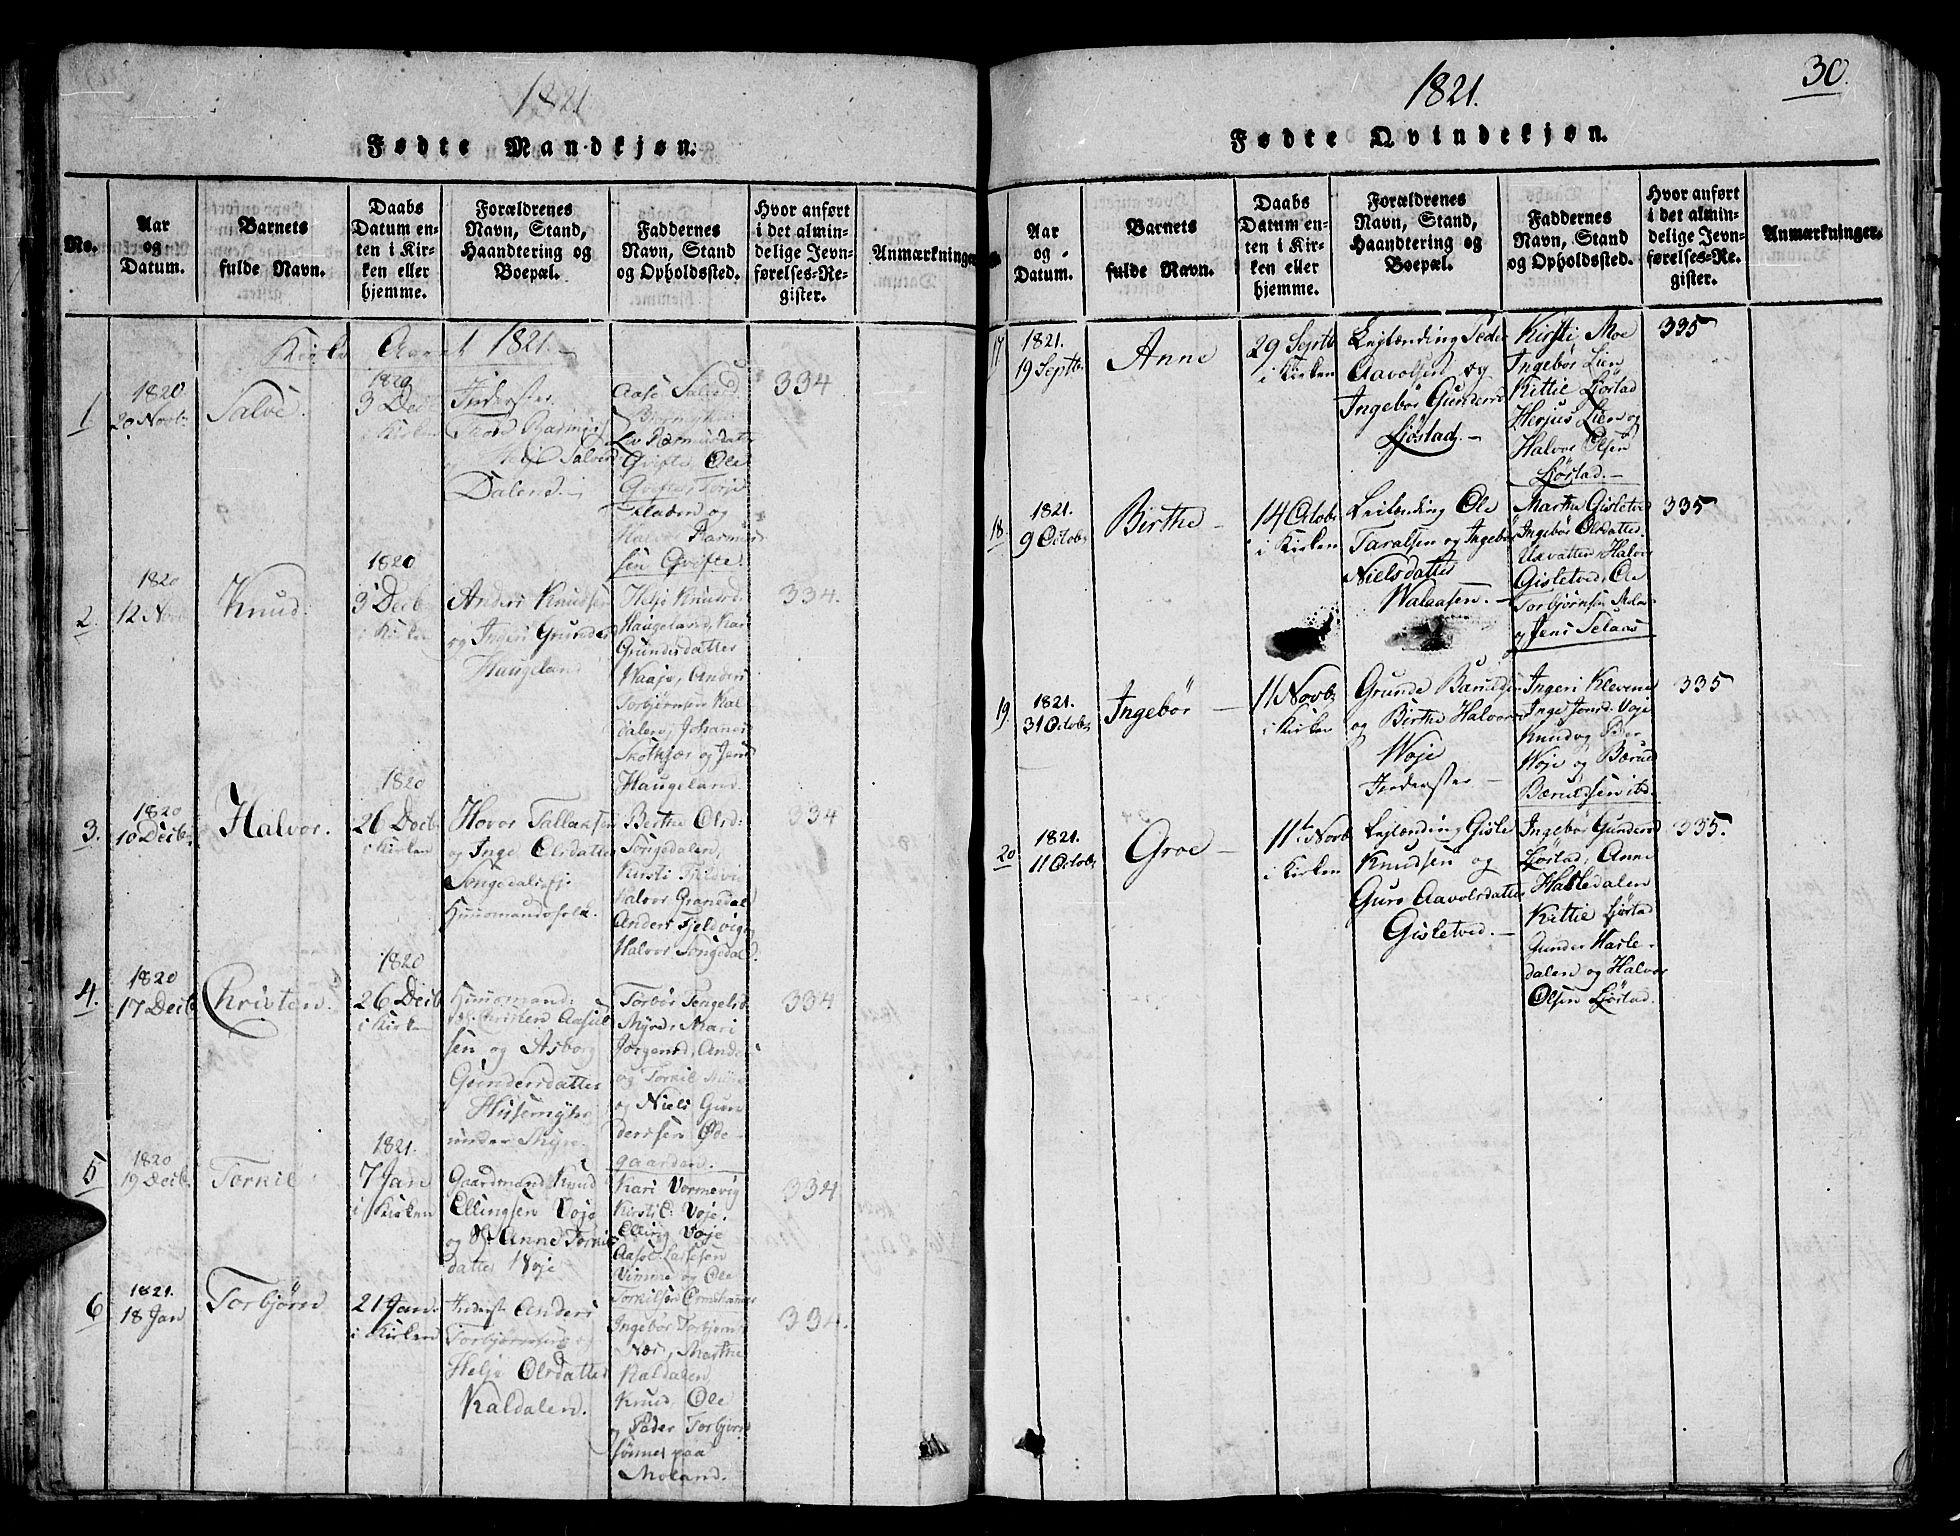 1821.
Fødte Mandkjøn.
No.
Aar
og
Datum.
Barnets
fulde Navn.
Daabs
Datum en-
ten i Kir-
ken eller
hjemme.
Forældrenes
Navn, Stand,
Haandtering og
Boepæl.
Faddernes
Navn, Stand
og Opholdssted.
Hvor anført
i det almin-
delige Jevn-
førelses-Re-
gister.
Anmærkninger.
Aaret 1821.
1
1820
20 Novb:
Salve.
1820
3 Dec
i Kirken
Inderster
og Salvesd:
Dalene
Aase Salvesd
Gvifte, Ole
Gvifte, Torje
Fladen og
Halvor Rasmus
sen Gvifte.
334
2
1820
12 Novb
Knud.
1820
3 Decb
i Kirken
Anders Knudsen
og Ingeri Gunders
Haugeland
Helje Knudsd.
Haugeland, Kari
Gundersdatter
Waaje, Anders
Torbjørnsen Kal
dalen, Johanes
og Jens
Haugeland.
334.
3.
1820
10 Decb:
Halvor.
1820
26 Decb
i Kirken
Hovor Tallaksen
og Inge Olsdatter
Songedalen
Huusmandsfolk.
Berthe Olsd:
Songedalen,
Kirsti
Halvor Granedal
Anders Fjeldvigen
Halvor Songedal.
334
4.
1820
17 Decb
Christen.
1820
26 Decb
i Kirken
Huusmand:
Christen Aasul
sen og Asborg
Gundersdatter
Husemyhr
under Myre.
Torbør Tengelsd.
Myre, Mari
Jørgensd, Anders
og Torkil Myre
og Niels Gun
dersen Øde-
gaarden.
334
5
1820
19 Decb.
Torkil
1821.
7 Jan
i Kirken
Gaardmand Knud
Ellingsen Voje
og Anne Torkils
datter Voje
Kari Vormevig
Kirsti E. Voje.
Elling Voje
Aasol Larsesen
Vimme og Ole
Torkilsen
334
6
1821.
18 Jan
Torbjørn
21 Jan.
i Kirken
Inderste Anders
Torbjørnsen og
Helje Olsdatter
Kaldalen.
Ingebor Torbjørns
Næs, Marthe
Kaldalen,
Knud, Ole
og Peder Torbjørns
sønner paa
Moland.
334.
30.
1821.
Fødte Qvindekjøn.
Aar
og
Datum.
Barnets
fulde Navn.
Daabs
Datum en-
ten i Kir-
ken eller
hjemme.
Forældrenes
Navn, Stand,
Haandtering og
Boepæl.
Faddernes
Navn, Stand
og Opholdssted.
Hvor anført
i det almin-
delige Jevn-
førelses-Re-
gister.
Anmærkninger.
17
1821.
19 Septb.
Anne
29 Septb
i Kirken
Lejlænding Peder
Aavolsen og
Ingebør Gundersd
Ljøstad. —
Kirsti Moe
Ingebør Lien
Kittie Ljøstad
Herjus Lien og
Halvor Olsen
Ljøstad. —
335
18.
1821.
9 Octob,
Birthe —
14 Octob
i Kirken
Leilænding Ole
Taralsen og Ingebør
Nielsdatter
Walaasen. —
Marthe Gisletved
Ingebør Olsdatter
Uevatten, Halvor
Gisletved, Ole
Torbjørnsen
og Jens Selaas
335
19.
1821.
31 Octob,
Ingebør —
11 Novb;
i Kirken
Grunde Barulsen
og Birthe Halvorsd
Woje
Inderster —
Ingeri Klevene
Inge Jonsd. Voje
Knud og Peder
Woje og Bærul
Bærulsen ibd.
335
20
1821.
11 Octob,
Groe —
11te Novb
i Kirken
Lejlænding Gisle
Knudsen og
Guro Aavolsdatter
Gisletved. —
Ingebør Gundersd
Ljøstad, Anne
Hasledalen
Kittie Ljøstad
Gunder Hasle-
dalen og Halvor
Olsen Ljøstad.
335.